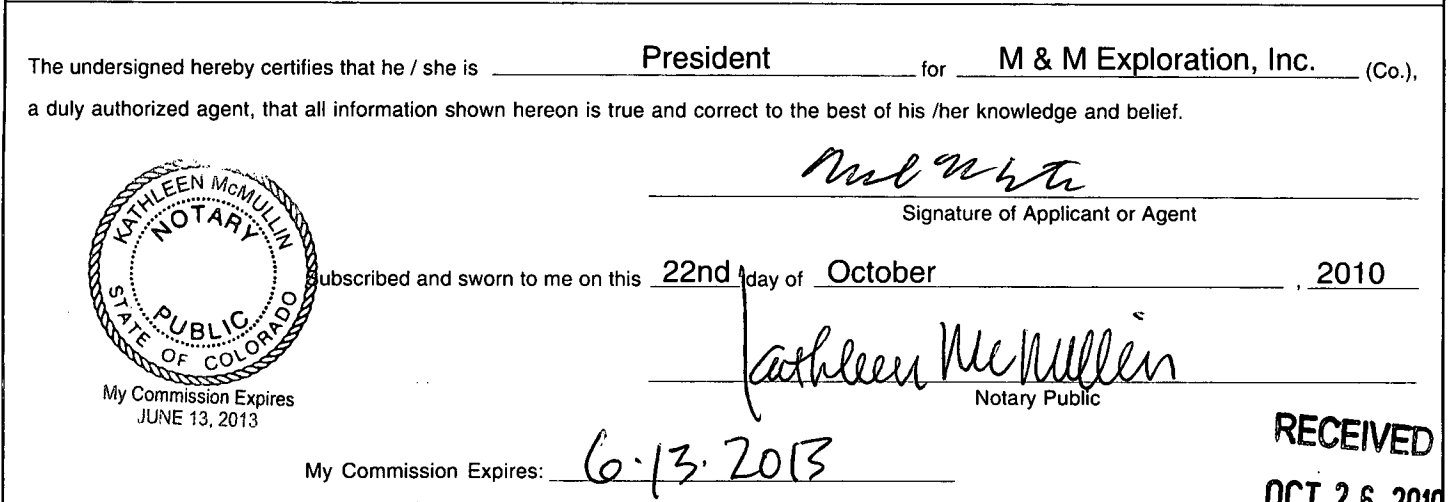 The undersigned hereby certifies that he / she is President for M & M Exploration, Inc. (Co.),
a duly authorized agent, that all information shown hereon is true and correct to the best of his /her knowledge and belief.
Signature of Applicant or Agent
KATHLEEN McMULLIN
NOTARY
PUBLIC
STATE OF COLORADO
My Commission Expires
JUNE 13, 2013
Subscribed and sworn to me on this 22nd day of October , 2010
Kathleen McMullin
Notary Public
My Commission Expires: 6.13.2013
RECEIVED
OCT 26 2010